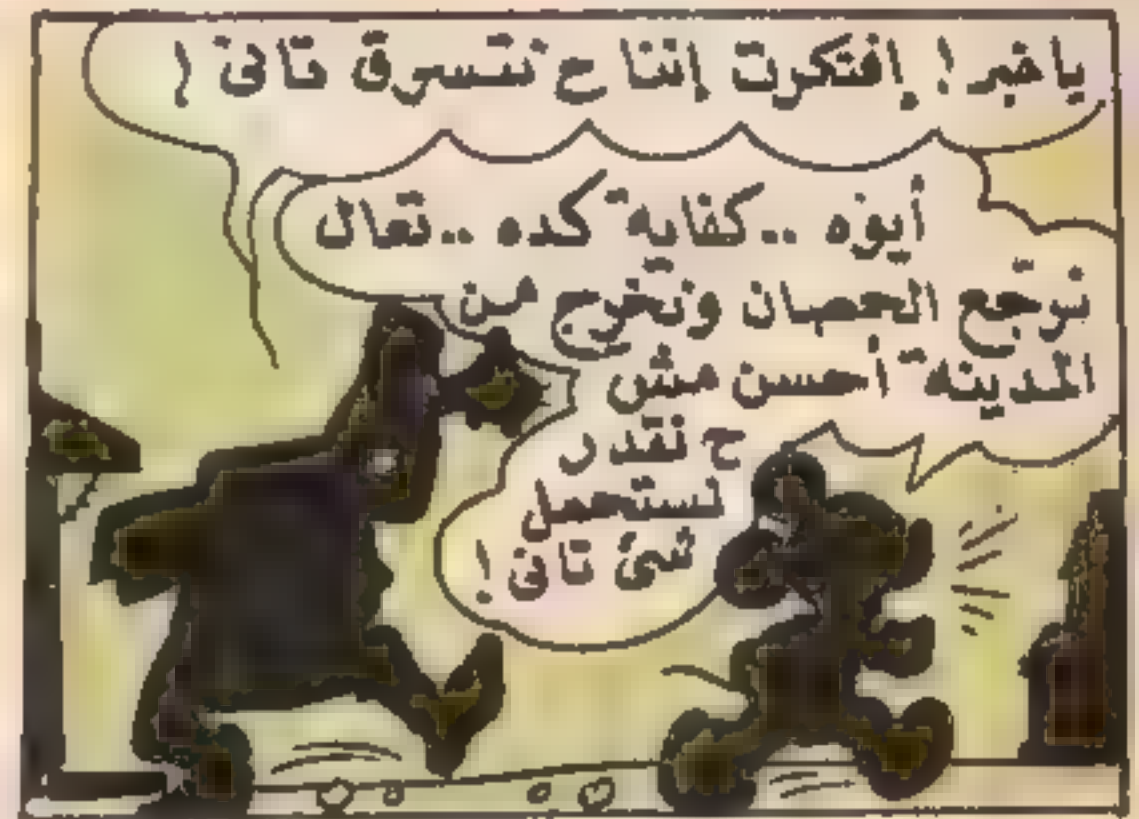 ياخبر! إفتكرت إننا ح نتسرق تانى!
أيوه .. كفاية كده .. تعال
نرجّع الحصان ونخرج من
المدينة أحسن مش
ح نقدر
نستحمل
شئ تانى!